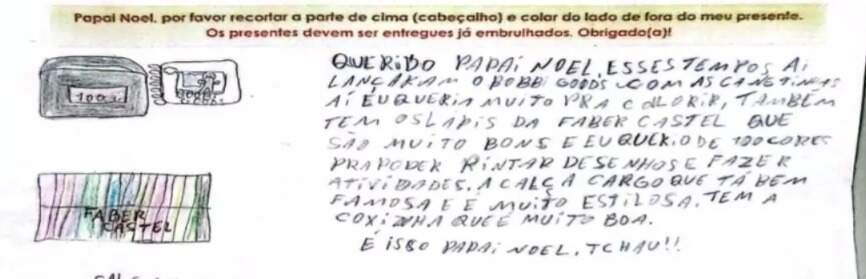 Papai Noel, por favor recortar a parte de cima (cabeçalho) e colar do lado de fora do meu presente.
Os presentes devem ser entregues já embrulhados. Obrigado(a)!
QUERIDO PAPAI NOEL, ESSES TEMPOS AI
LANÇARAM O BOBBI GOODS COM AS CANETINHAS
AÍ EU QUERIA MUITO PRA COLORIR, TAMBÉM
TEM OS LAPIS DA FABER CASTEL QUE
SÃO MUITO BONS E EU QUERIO DE 100 CORES
PRA PODER PINTAR DESENHOS E FAZER
ATIVIDADES. A CALÇA CARGO QUE TÁ BEM
FAMOSA E É MUITO ESTILOSA, TEM A
COXINHA QUE É MUITO BOA.
É ISSO PAPAI NOEL, TCHAU!!
100
FABER
CASTEL